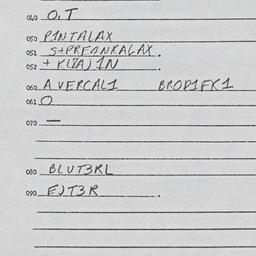 040 O.T
050 P1NTALAX
051 S+PRFONKALAX.
052 + K1(A) 1N
060 A VERCAL1 BROD1FK1
061 O
070 —
080 BLUT3RL
090 EJT3R.